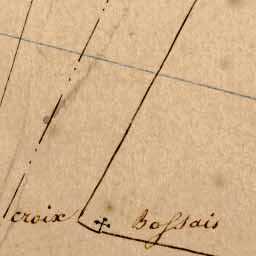 croix Boſsais